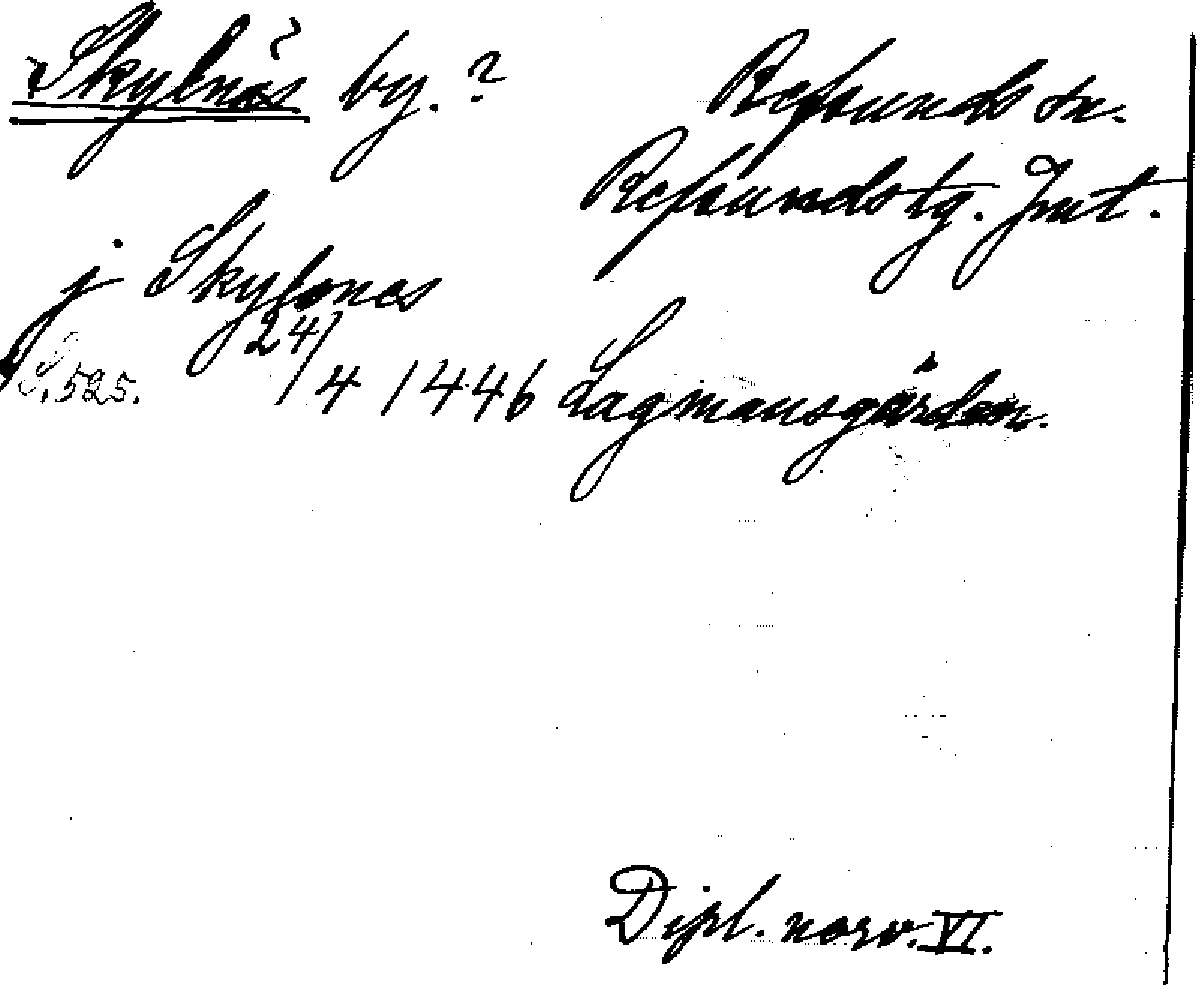 Skylnäs by. ?
?
Refsunds sn.
Refsunds tg. Jmt.
j Skylones
S. 525. 24/4 1446 Lagmansgården.
Dipl. norv. VI.